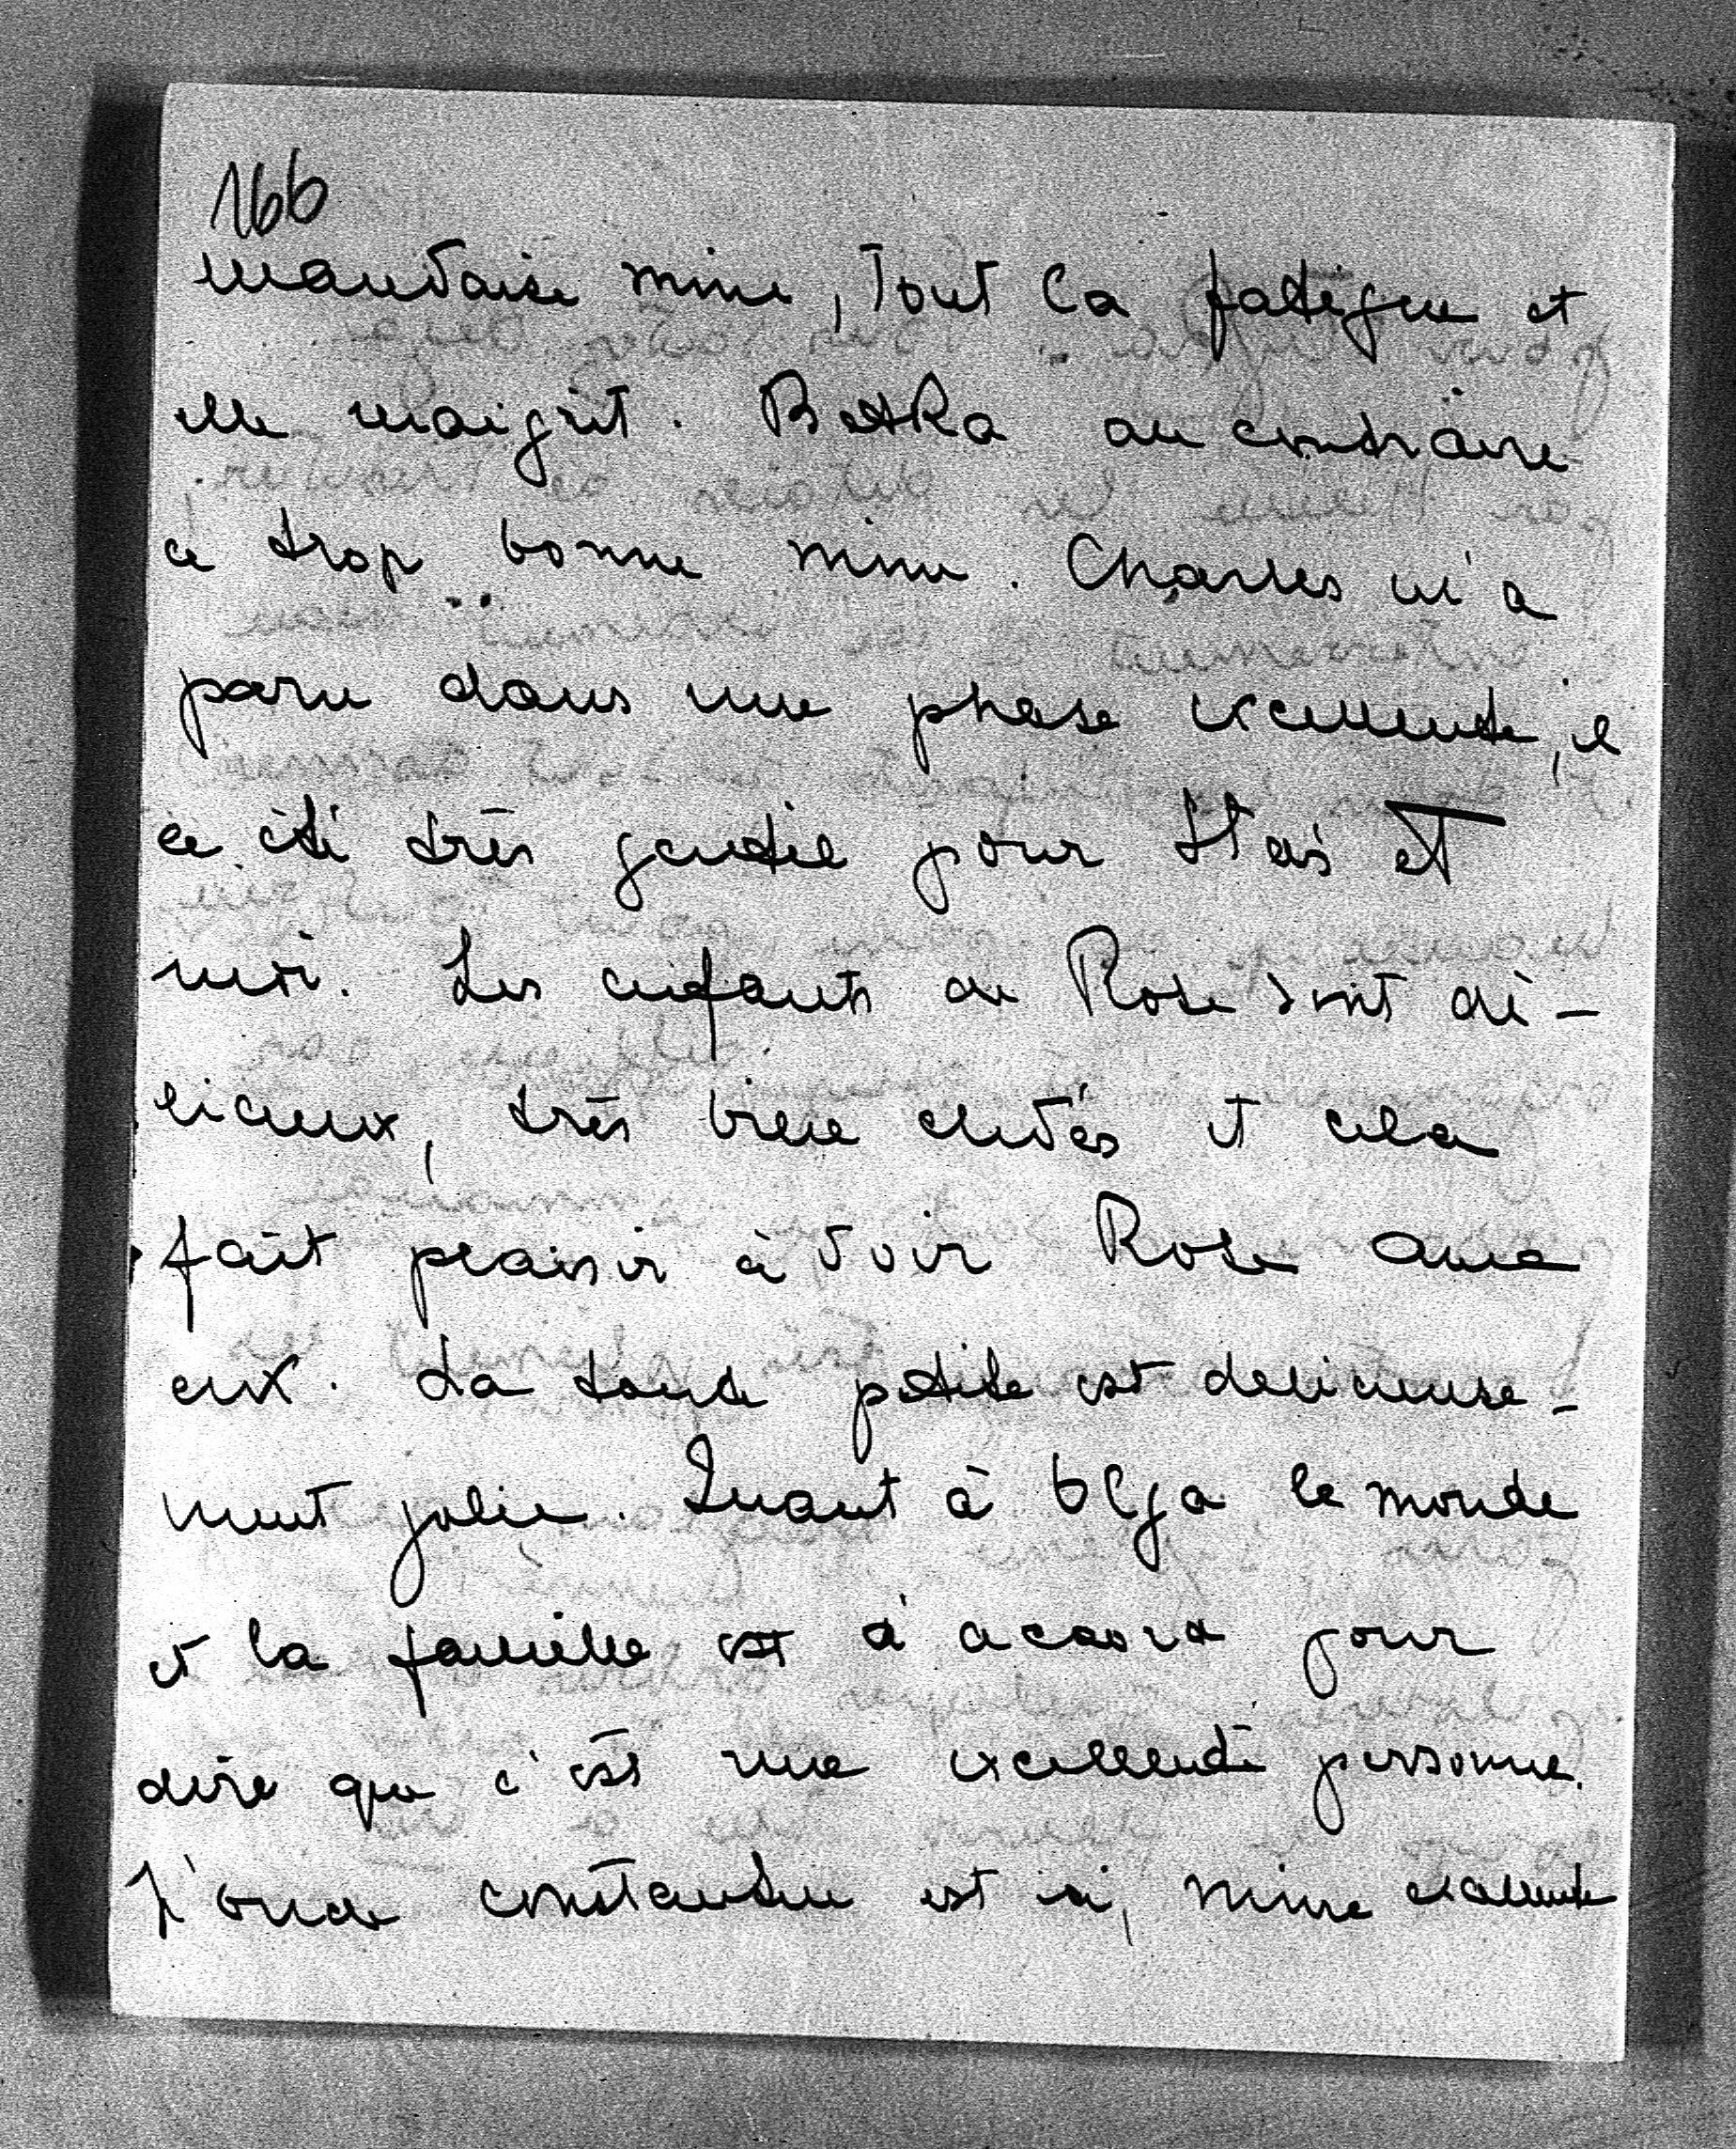 166
mauvaise mine, tout la fatigue et
elle maigrit. Betka au contraire
a trop bonne mine. Charles m'a
paru dans une phase excellente, il
a été très gentil pour Staś et
moi. Les enfants de Rose sont dé-
licieux, très bien elevés et cela
fait plaisir à voir Rose avec
eux. La toute petite est delicieuse-
ment jolie. Quant à Olga le monde
et la famille est d'accord pour
dire que c'est une excellente personne.
L'oncle Constantin est ici, mine excellente